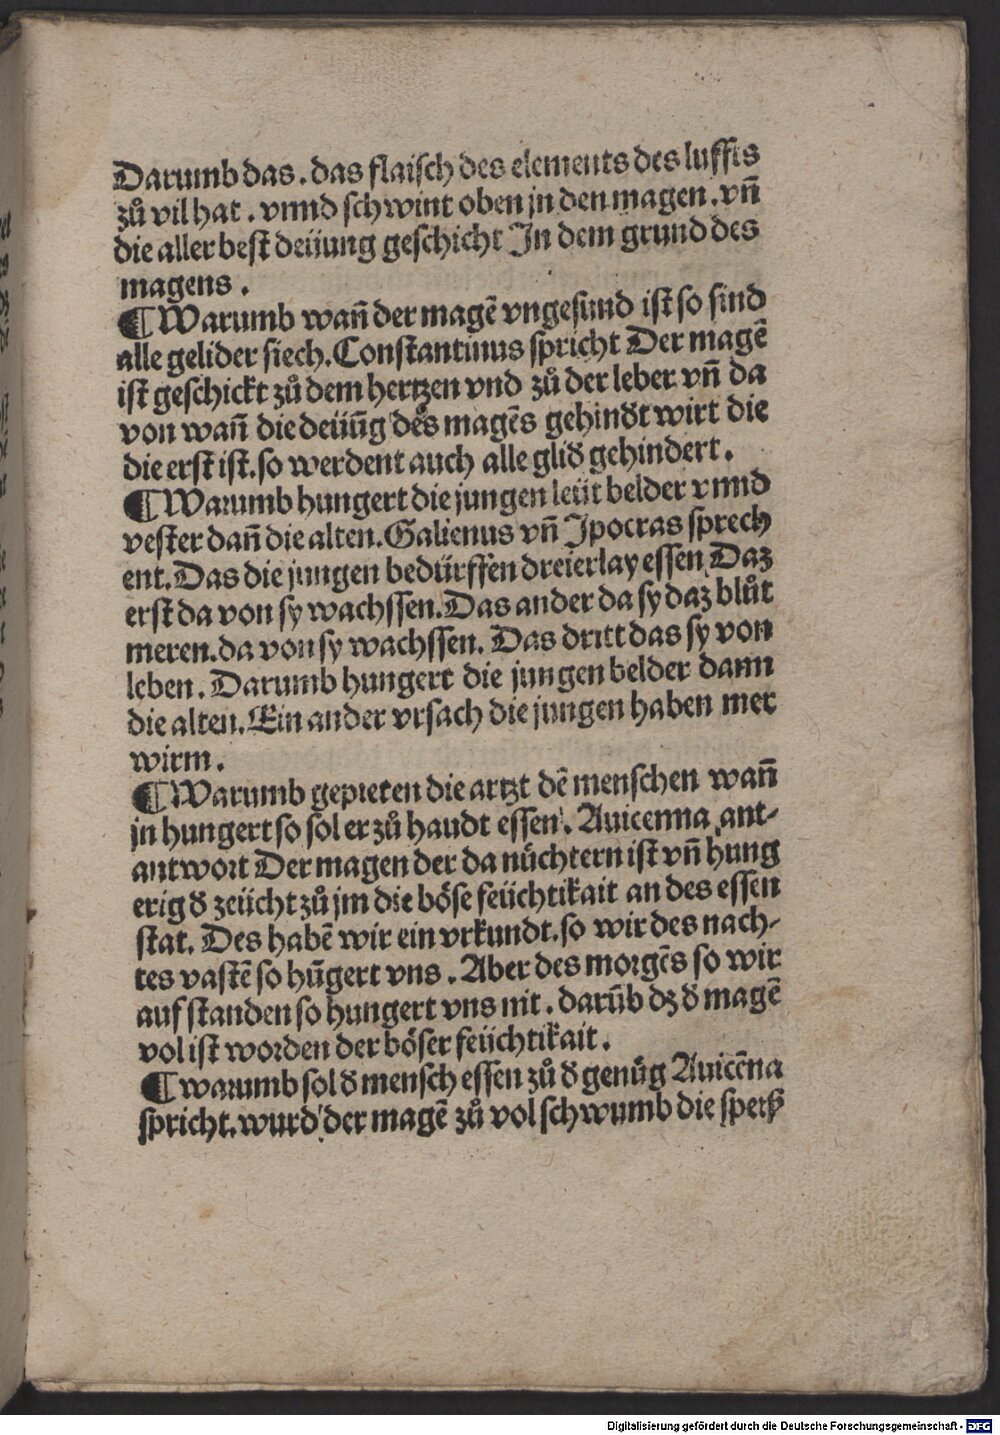 Darumb das. das flaisch des elements des luffts
zů vil hat. vnnd schwint oben jn den magen. vñ
die aller best deüung geschicht In dem grund des
magens.
¶ Warumb wañ der magē vngesund ist so sind
alle gelider siech. Constantinus spricht Der magē
ist geschickt zů dem hertzen vnd zů der leber vñ da
von wañ die deüūg des magēs gehindt wirt die
die erst ist. so werdent auch alle glid gehindert.
¶ Warumb hungert die jungen leüt belder vnnd
vester dañ die alten. Galienus vñ Ipocras sprech
ent. Das die jungen bedürffen dreierlay essen Daz
erst da von sy wachssen. Das ander da sy daz blůt
meren. da von sy wachssen. Das dritt das sy von
leben. Darumb hungert die jungen belder dann
die alten. Ein ander vrsach die jungen haben mer
wirm.
¶ Warumb gepieten die artzt dē menschen wañ
jn hungert so sol er zů handt essen. Auicenna ant-
antwort Der magen der da nüchtern ist vñ hung
erig d zeücht zů jm die böse feüchtikait an des essen
stat. Des habē wir ein vrkundt. so wir des nach-
tes vastē so hūgert vns. Aber des morgēs so wir
auf standen so hungert vns nit. darūb dz d magē
vol ist worden der böser feüchtikait.
¶ warumb sol d mensch essen zů d genüg Auicēna
spricht. wurd der magē zů vol schwumb die speiß
Digitalisierung gefördert durch die Deutsche Forschungsgemeinschaft - DFG